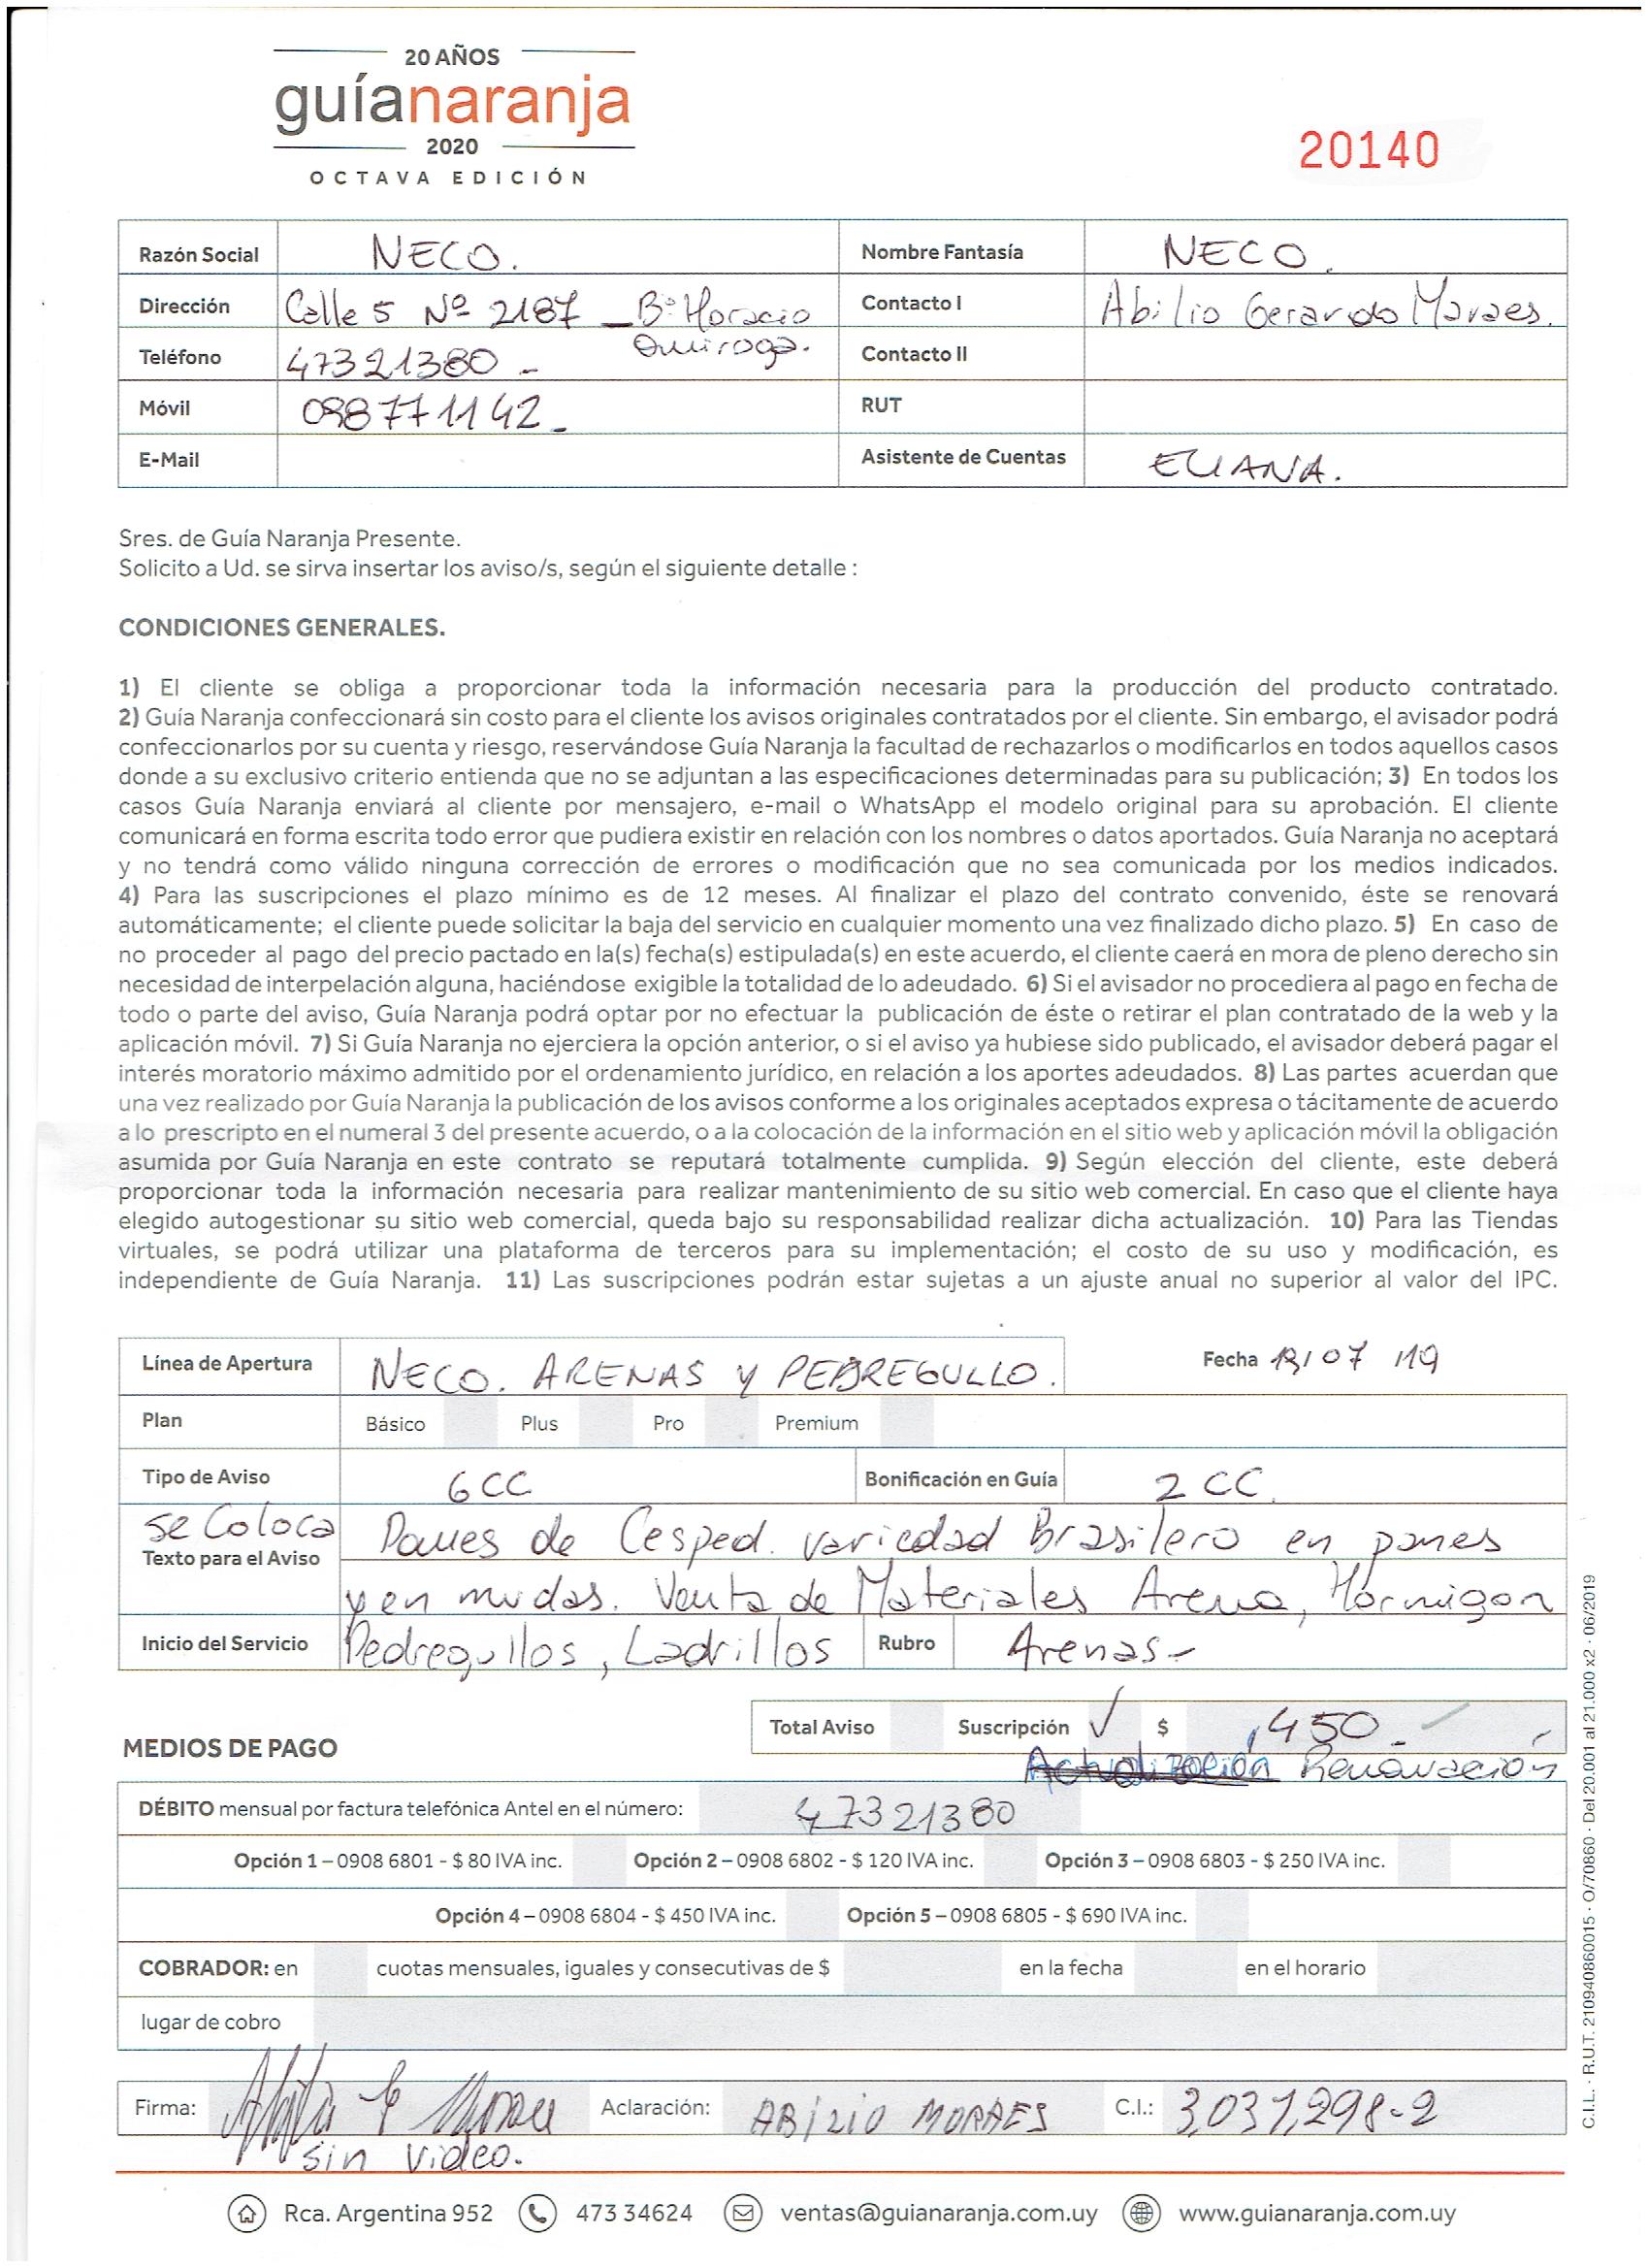 20 AÑOS
guíanaranja
2020
OCTAVA EDICIÓN
20140
Razón Social NECO. Nombre Fantasía NECO.
Dirección Calle 5 Nº 2187 _ Bº Horacio Quiroga. Contacto I Abilio Gerardo Moraes.
Teléfono 47321380 - Contacto II
Móvil 098771142 - RUT
E-Mail Asistente de Cuentas ELIANA.
Sres. de Guía Naranja Presente.
Solicito a Ud. se sirva insertar los aviso/s, según el siguiente detalle :
CONDICIONES GENERALES.
1) El cliente se obliga a proporcionar toda la información necesaria para la producción del producto contratado.
2) Guía Naranja confeccionará sin costo para el cliente los avisos originales contratados por el cliente. Sin embargo, el avisador podrá
confeccionarlos por su cuenta y riesgo, reservándose Guía Naranja la facultad de rechazarlos o modificarlos en todos aquellos casos
donde a su exclusivo criterio entienda que no se adjuntan a las especificaciones determinadas para su publicación; 3) En todos los
casos Guía Naranja enviará al cliente por mensajero, e-mail o WhatsApp el modelo original para su aprobación. El cliente
comunicará en forma escrita todo error que pudiera existir en relación con los nombres o datos aportados. Guía Naranja no aceptará
y no tendrá como válido ninguna corrección de errores o modificación que no sea comunicada por los medios indicados.
4) Para las suscripciones el plazo mínimo es de 12 meses. Al finalizar el plazo del contrato convenido, éste se renovará
automáticamente; el cliente puede solicitar la baja del servicio en cualquier momento una vez finalizado dicho plazo. 5) En caso de
no proceder al pago del precio pactado en la(s) fecha(s) estipulada(s) en este acuerdo, el cliente caerá en mora de pleno derecho sin
necesidad de interpelación alguna, haciéndose exigible la totalidad de lo adeudado. 6) Si el avisador no procediera al pago en fecha de
todo o parte del aviso, Guía Naranja podrá optar por no efectuar la publicación de éste o retirar el plan contratado de la web y la
aplicación móvil. 7) Si Guía Naranja no ejerciera la opción anterior, o si el aviso ya hubiese sido publicado, el avisador deberá pagar el
interés moratorio máximo admitido por el ordenamiento jurídico, en relación a los aportes adeudados. 8) Las partes acuerdan que
una vez realizado por Guía Naranja la publicación de los avisos conforme a los originales aceptados expresa o tácitamente de acuerdo
a lo prescripto en el numeral 3 del presente acuerdo, o a la colocación de la información en el sitio web y aplicación móvil la obligación
asumida por Guía Naranja en este contrato se reputará totalmente cumplida. 9) Según elección del cliente, este deberá
proporcionar toda la información necesaria para realizar mantenimiento de su sitio web comercial. En caso que el cliente haya
elegido autogestionar su sitio web comercial, queda bajo su responsabilidad realizar dicha actualización. 10) Para las Tiendas
virtuales, se podrá utilizar una plataforma de terceros para su implementación; el costo de su uso y modificación, es
independiente de Guía Naranja. 11) Las suscripciones podrán estar sujetas a un ajuste anual no superior al valor del IPC.
Línea de Apertura NECO. ARENAS Y PEDREGULLO. Fecha /07 /19
Plan Básico Plus Pro Premium
Tipo de Aviso 6CC Bonificación en Guía 2 CC.
se Coloca Panes de Cesped. variedad Brasilero en panes
Texto para el Aviso
y en mudas. Venta de Materiales Arena, Hormigon
Inicio del Servicio Pedregullos, Ladrillos Rubro Arenas-
Total Aviso Suscripción ✓ $ 450.-
MEDIOS DE PAGO
Actualización Renovación
DÉBITO mensual por factura telefónica Antel en el número: 47321380
Opción 1 – 0908 6801 - $ 80 IVA inc. Opción 2 – 0908 6802 - $ 120 IVA inc. Opción 3 – 0908 6803 - $ 250 IVA inc.
Opción 4 – 0908 6804 - $ 450 IVA inc. Opción 5 – 0908 6805 - $ 690 IVA inc.
COBRADOR: en cuotas mensuales, iguales y consecutivas de $ en la fecha en el horario
lugar de cobro
Firma: Aclaración: ABILIO MORAES C.I.: 3.031.298-2
sin video.
Rca. Argentina 952 473 34624 ventas@guianaranja.com.uy www.guianaranja.com.uy
C.I.L. · R.U.T. 210940860015 · O/70860 · Del 20.001 al 21.000 x2 · 06/2019